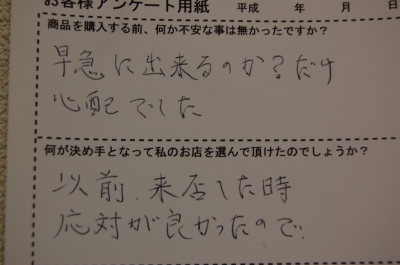 お客様アンケート用紙 平成 年 月 日
商品を購入する前、何か不安な事は無かったですか？
早急に出来るのか？だけ
心配でした
何が決め手となって私のお店を選んで頂けたのでしょうか？
以前、来店した時
応対が良かったので、